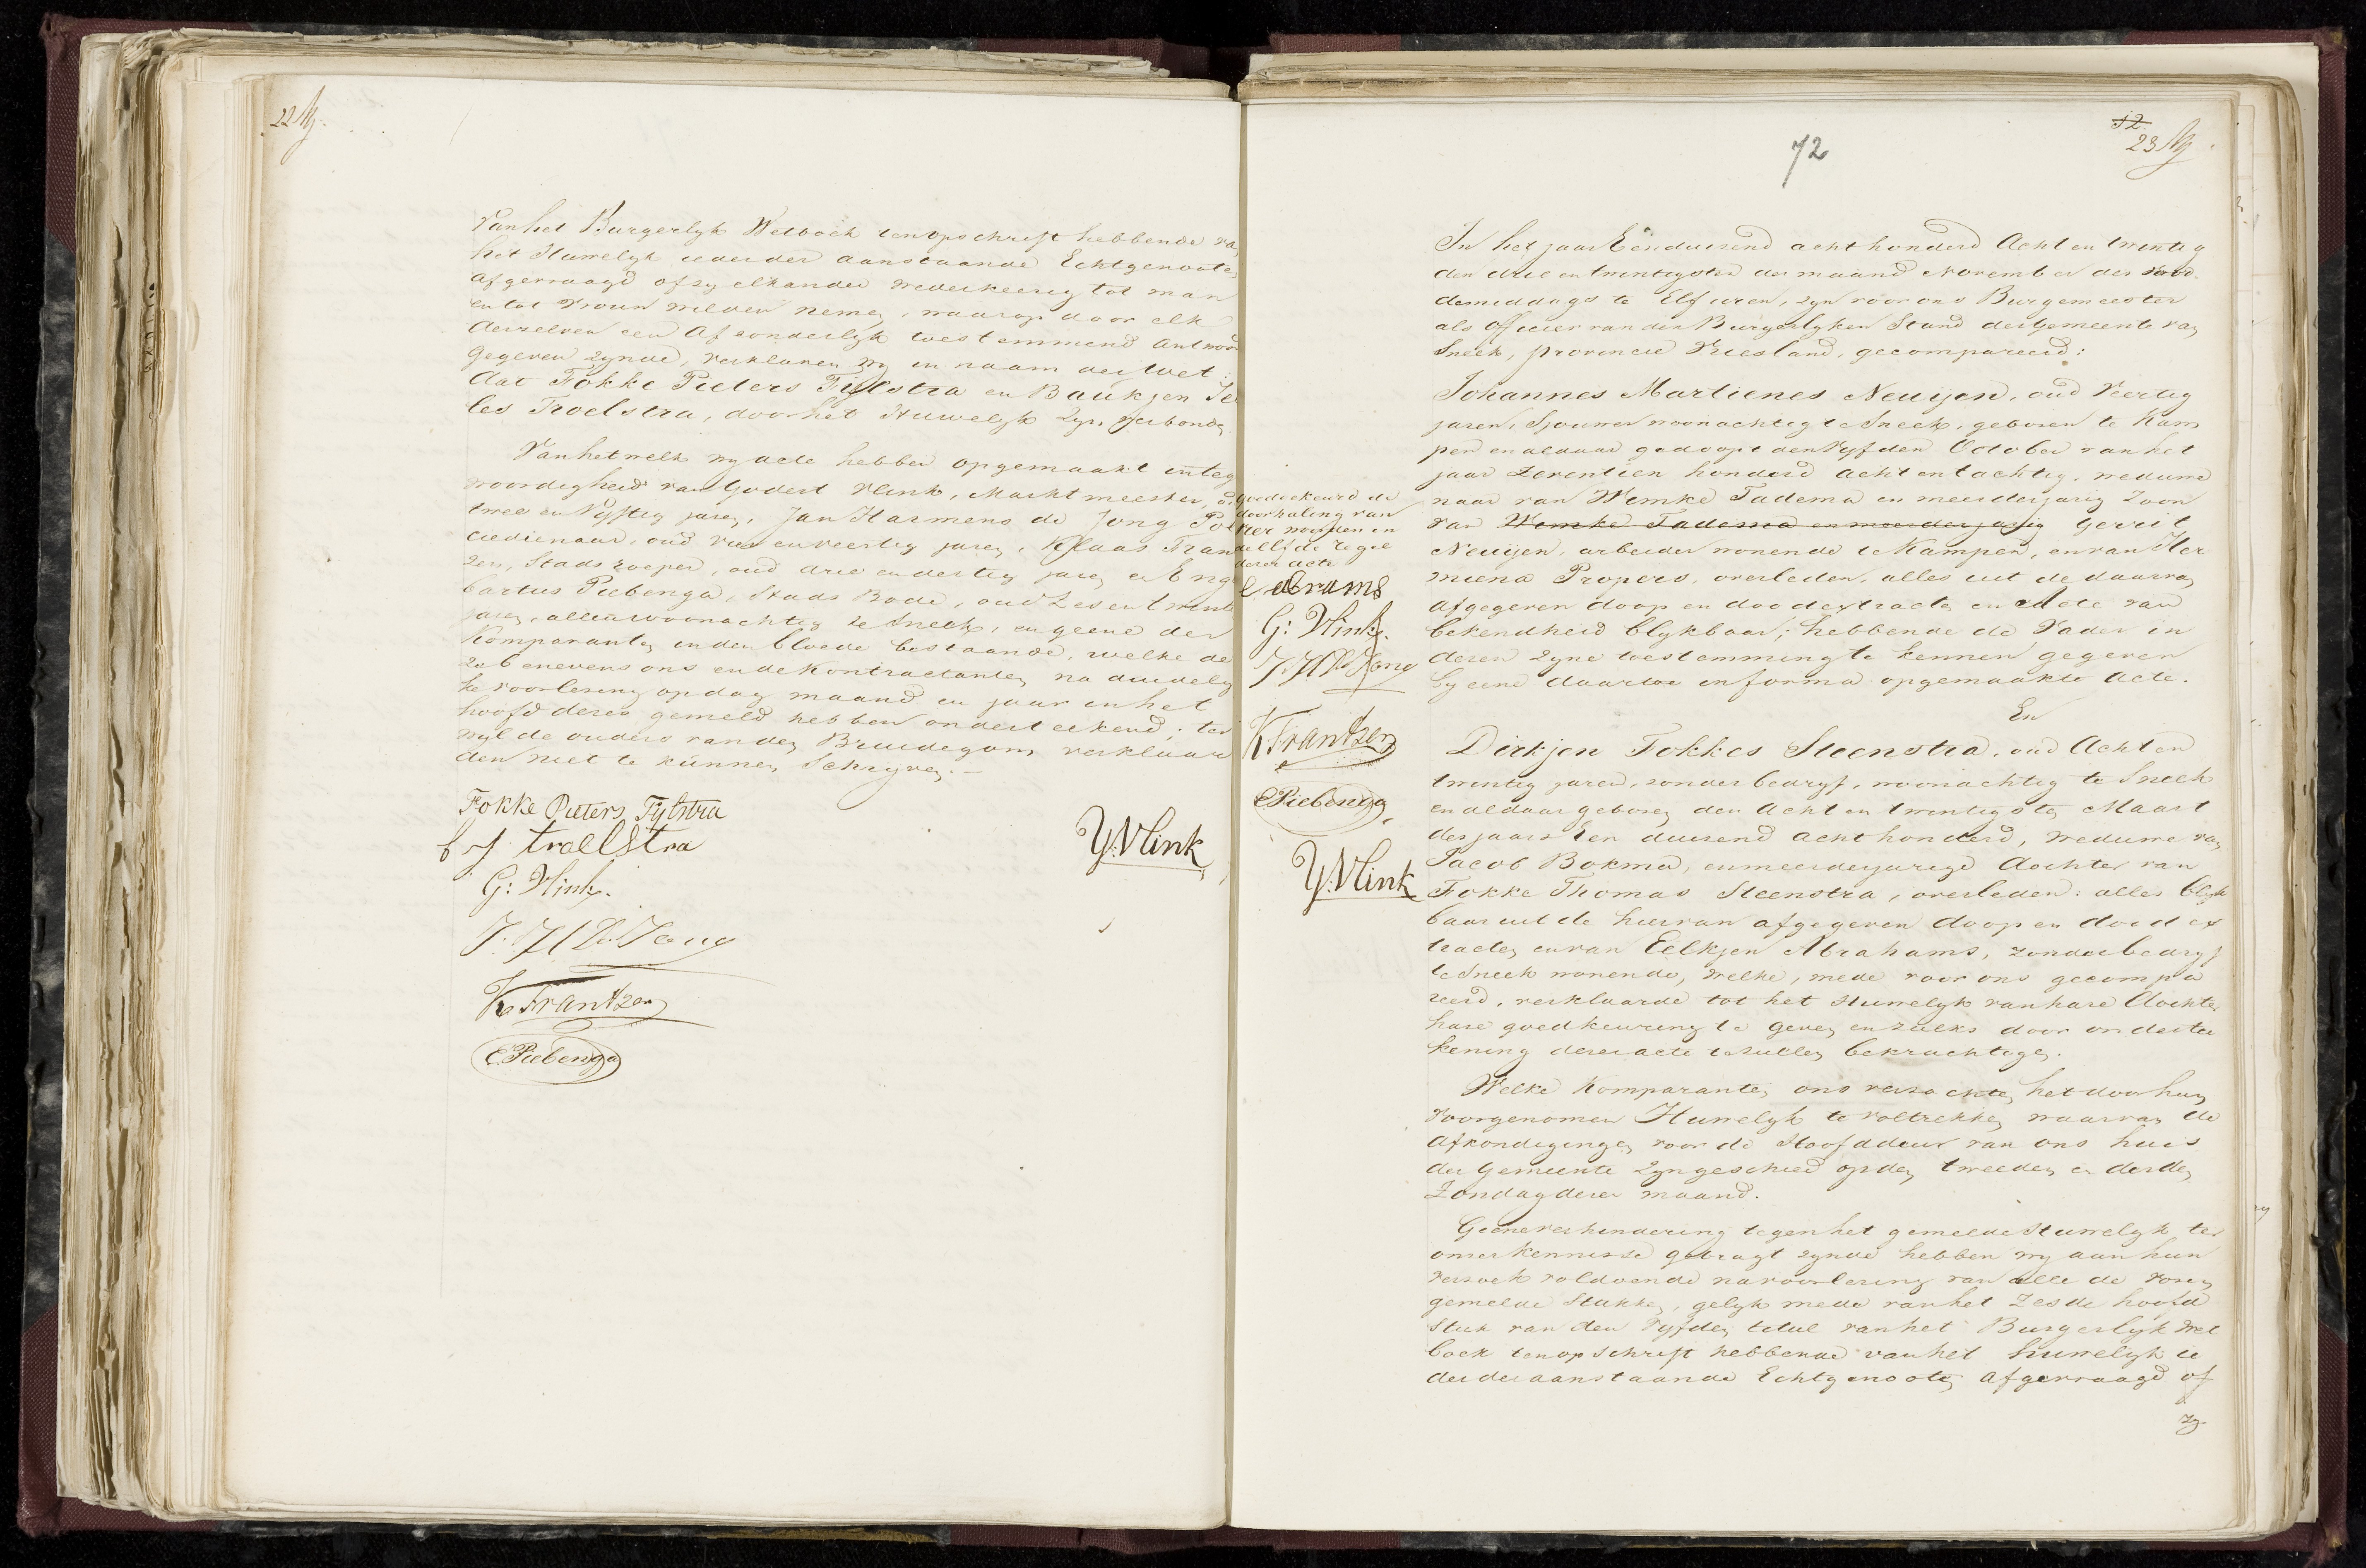 22
Van het Burgerlyk Wetboek ten opschrift hebbende va
het Huwelyk ieder der aanstaande Echtgenoote
afgevraagd of zy elkander wederkeerig tot man
en tot Vrouw wilden nemen, waarop door elk
derzelven een afzonderlyk toestemmend antwoor
gegeven zynde, verklaren wy in naam der wet:
dat Fokke Pieters Tijlstra en Baukjen Je
les Troelstra, door het Huwelyk zyn verbonden
Van het welk wy acte hebben opgemaakt in teg
woordigheid van Godert Vlink, Marktmeester, o
twee en Vyftig jaren, Jan Harmens de Jong Po
ciedienaar, oud vier en veertig jaren, Klaas Fran
zen, Stads roeper, oud drie en dertig jaren en Eng
bartus Piebenga, Stads Bode, oud Zes en twint
jaren, allen woonachtig te Sneek, en geene der
Komparanten in den bloede bestaande, welke de
ze benevens ons en de Kontractanten na duidely
ke voorlezing op dag maand en jaar in het
hoofd dezer gemeld hebben onderteekend; ter
wyl de ouders van den Bruidegom verklaar
den niet te kunnen Schryven.—
Fokke Pieters Tylstra
b J troelstra
G: Vlink.
J. H. De Jong
K Frantzen
E Piebenga
Y: Vlink
72
12
23
Goedgekeurd de
doorhaling van
vier woorden in
elfde regel
dezer acte
E abrams
G: Vlink.
J H De Jong
K Frantzen
E Piebenga
Y: Vlink
In het jaar Eenduizend acht honderd Acht en twintig
den drie en twintigsten der maand November des voor-
demiddags te Elf uren, zyn voor ons Burgemeester
als officier van den Burgerlyken Stand der Gemeente van
Sneek, provincie Vriesland, gecompareerd:
Johannes Martienes Neuijen, oud Veertig
jaren, Sjouwer woonachtig te Sneek, geboren te Kam
pen en aldaar gedoopt den Vyfden October van het
jaar Zeventien honderd acht en tachtig, weduwe
naar van Wemke Tadema en meerderjarig Zoon
van Wemke Tadema en meerderjarig Gerrit
Neuijen, arbeider wonende te Kampen, en van Her
miena Propers, overleden, alles uit de daarvan
afgegeven doop en doodextracten en Acte van
bekendheid blykbaar; hebbende de Vader in
dezen zyne toestemming te kennen gegeven
by eene daartoe in forma opgemaakte acte.
En
Dirkjen Fokkes Steenstra, oud Acht en
twintig jaren, zonder bedryf, woonachtig te Sneek
en aldaar geboren den Acht en twintigsten Maart
des jaars Een duizend acht honderd, weduwe van
Jacob Bokma, en meerderjarige dochter van
Fokke Thomas Steenstra, overleden: alles blyk
baar uit de hiervan afgegeven doop en dood ex
tracten en van Eelkjen Abrahams, zonder bedryf
te Sneek wonende, welke, mede voor ons gecompa
reerd, verklaarde tot het Huwelyk van hare dochter
hare goedkeuring te geven en zulks door ondertee
kening dezer acte te zullen bekrachtigen.
Welke Komparanten ons verzochten het door hun
voorgenomen Huwelyk te voltrekken waarvan de
afkondigingen voor de Hoofddeur van ons huis
der Gemeente zyn geschied op den tweeden en derden
Zondag dezer maand.
Geene verhindering tegen het gemelde Huwelyk ter
onzer kennisse gebragt zynde hebben wy aan hun
verzoek voldoende na voorlezing van alle de voren
gemelde Stukken, gelyk mede van het Zesde hoofd
stuk van den Vyfden titul van het Burgerlyk Wet
boek ten opschrift hebbende van het huwelyk ie
der der aanstaande Echtgenooten afgevraagd of
zy